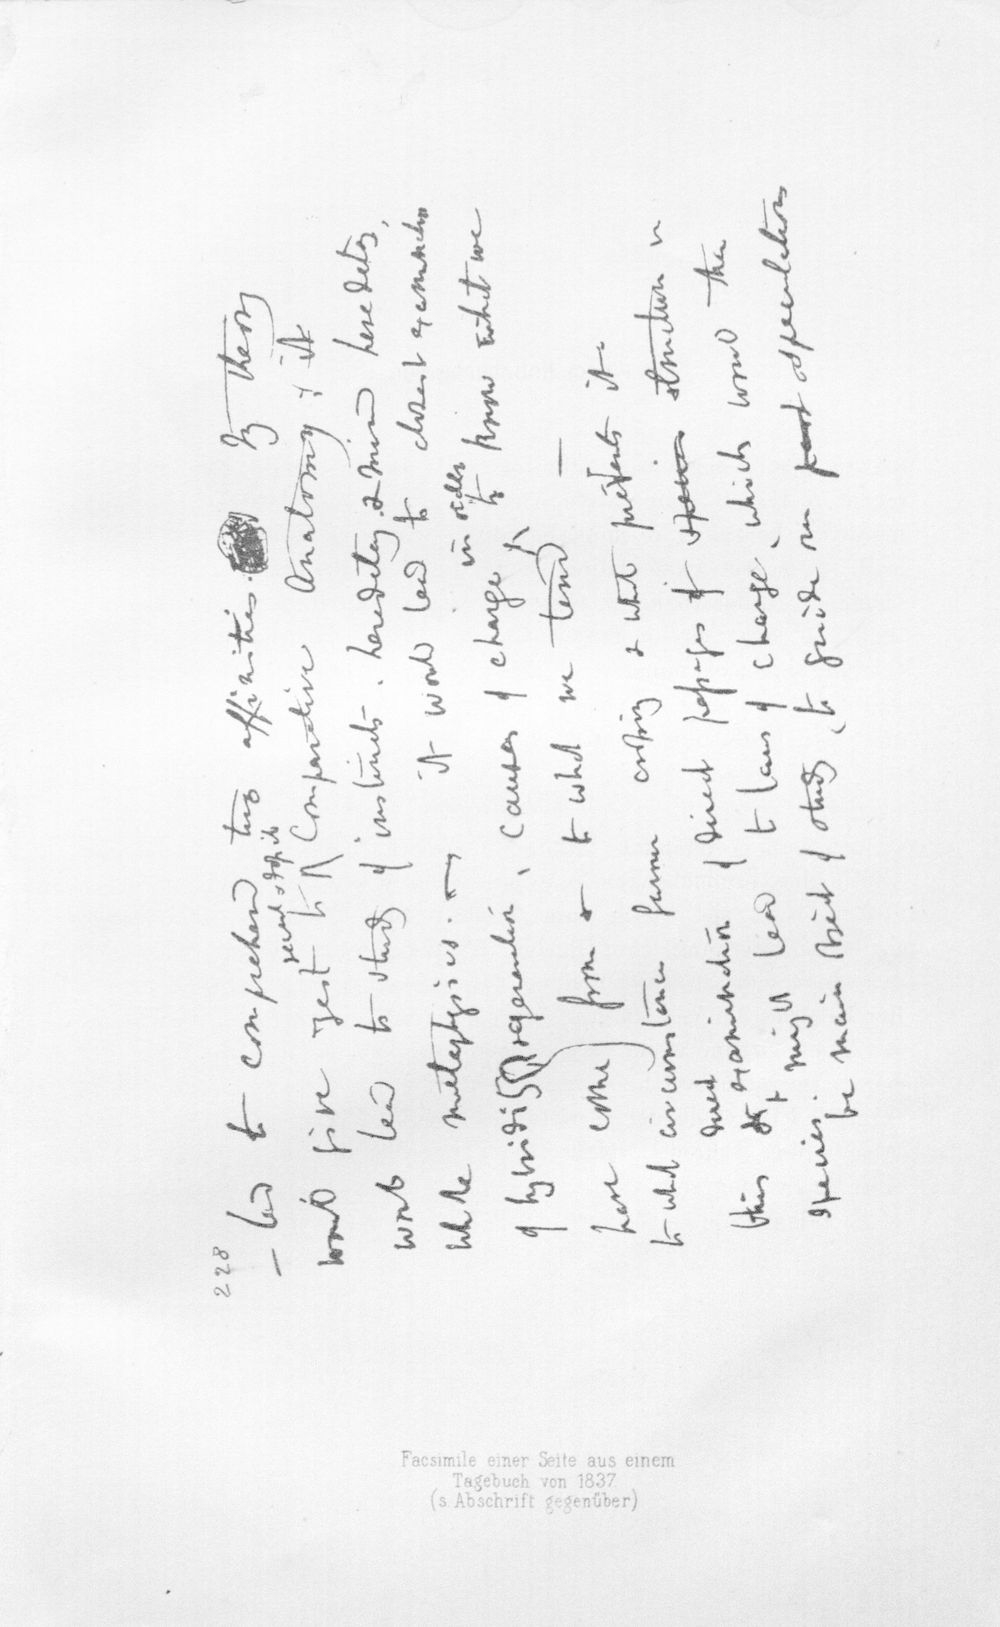 228
— led to comprehend true affinities. My theory
would give zest to recent & Fossil Comparative Anatomy; it
would lead to study of instincts, heredity, & mind heredity,
whole metaphysics. — it would lead to closest examination
of hybridity & regeneration, causes of change in order to know what we
have come from & to what we tend. —
to what circumstances favour crossing & what prevents it
this & direct examination of direct passages of species structure in
species, might lead to laws of change, which would then
be main object of study, to guide our past speculations
Facsimile einer Seite aus einem
Tagebuch von 1837
(s. Abschrift gegenüber)